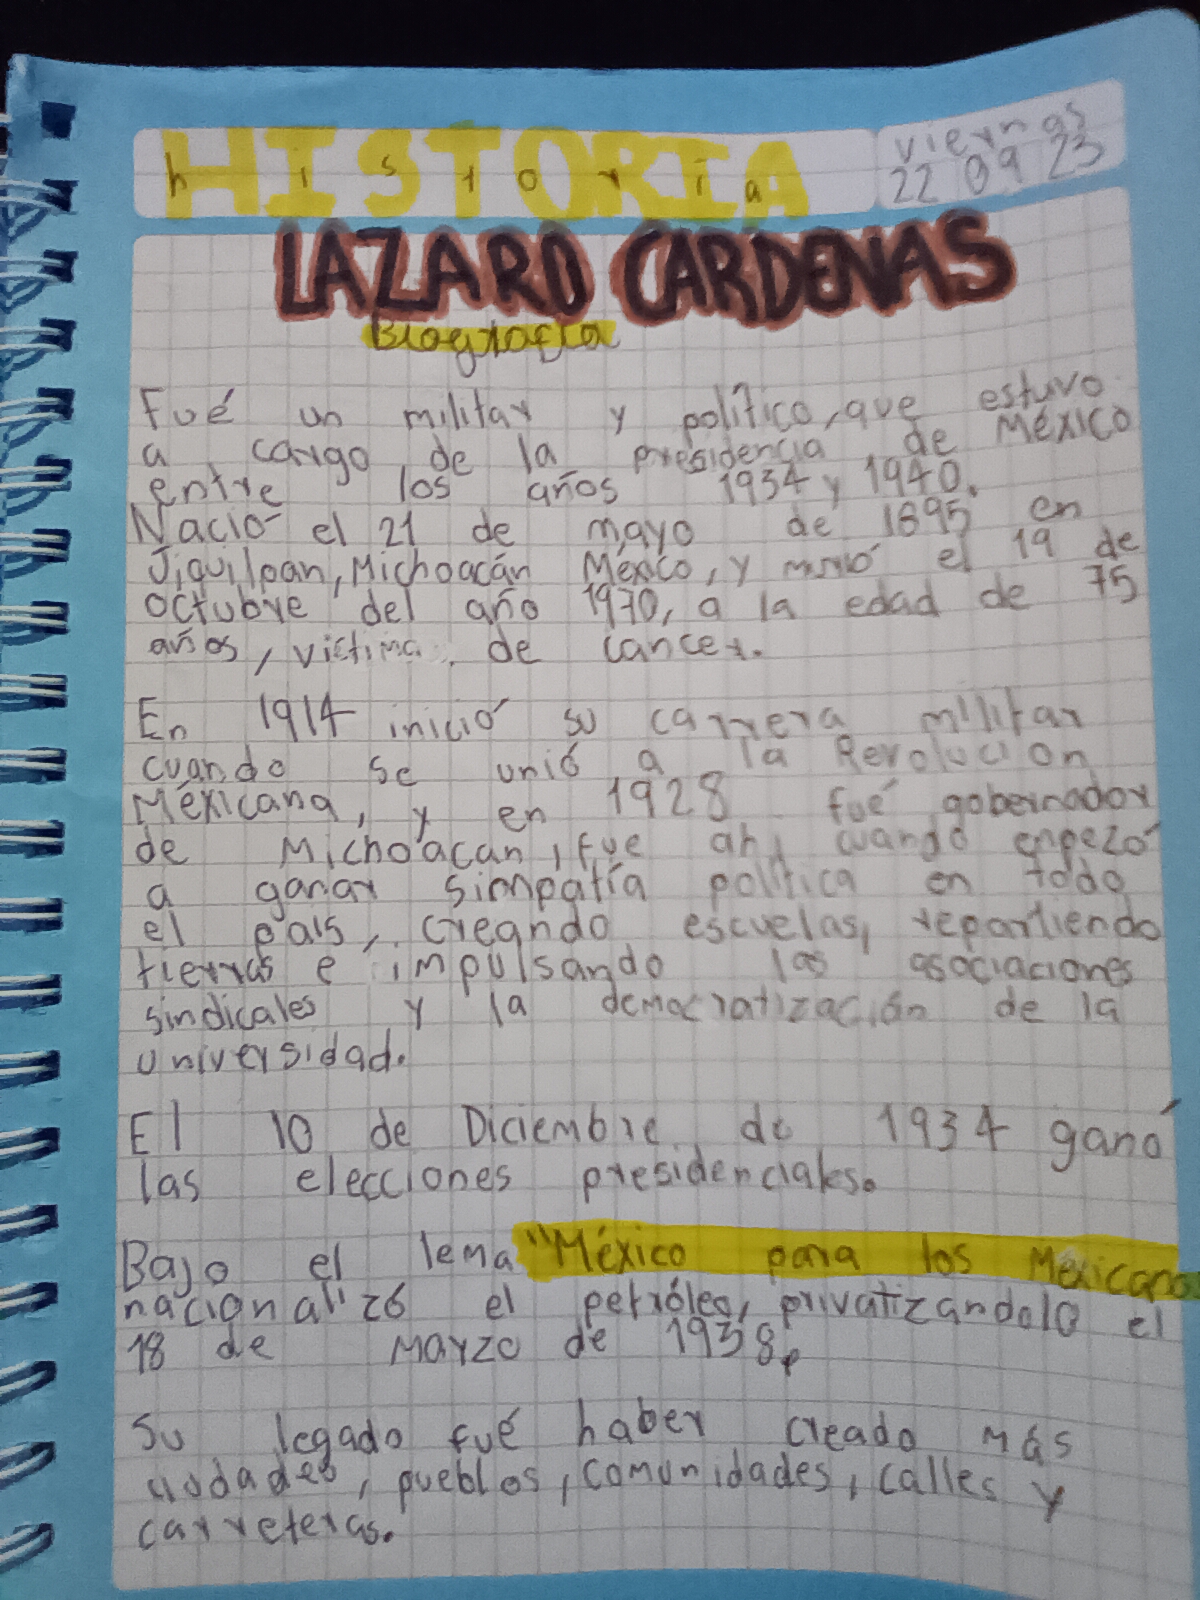 HISTORIA
historia
viernes
22 09 23
LAZARO CARDENAS
Biografia
Fué un militar y político, que estuvo
a cargo de la presidencia de México
entre los años 1934 y 1940.
Nació el 21 de mayo de 1895 en
Jiquilpan, Michoacán México, y murió el 19 de
octubre del año 1970, a la edad de 75
años, victima de cancer.
En 1914 inició su carrera militar
cuando se unió a la Revolucion
Méxicana, y en 1928 fué gobernador
de Michoacan, fue ahi cuando enpezó
a ganar simpatía política en todo
el pais, creando escuelas, repartiendo
tierras e impulsando las asociaciones
sindicales y la democratización de la
universidad.
El 10 de Diciembre de 1934 ganó
las elecciones presidenciales.
Bajo el lema "México para los Mexicanos
nacionalizó el petróleo, privatizandolo el
18 de Marzo de 1938.
Su legado fué haber creado más
ciudades, pueblos, comunidades, calles y
carreteras.